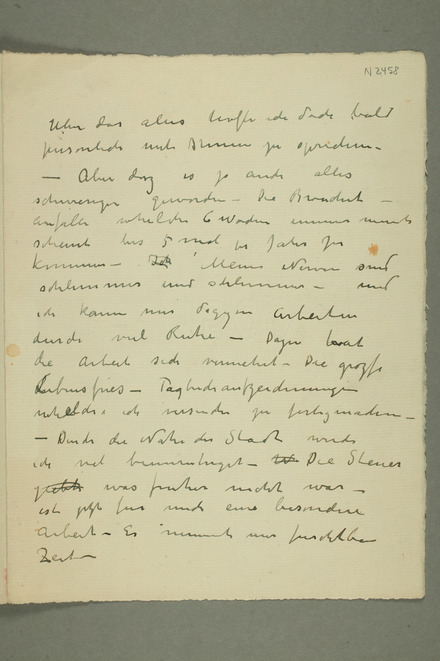 N 2458
Über das alles hoffe ich doch bald
persönlich mit Ihnen zu sprechen –
– Aber das ist ja auch alles
schwieriger geworden – Die
anfälle welche 6 Wochen immer
scheint bis 5 mal per Jahr zu
kommen – Meine Nerven sind
schlimmer und schlimmer – und
ich kann nur dagegen arbeiten
durch viel Ruhe – Dazu hat
die Arbeit sich vermehrt – Die große
Lebensfries – Tagbuchaufzeichnungen
welche ich versuche zu fertigmachen –
– Durch die Nähe der Stadt werde
ich viel beunruhigt – Die Steuer
was früher nicht war –
ist jetzt für mich eine besondere
Arbeit – Es nimmt mir furchtbar
Zeit –